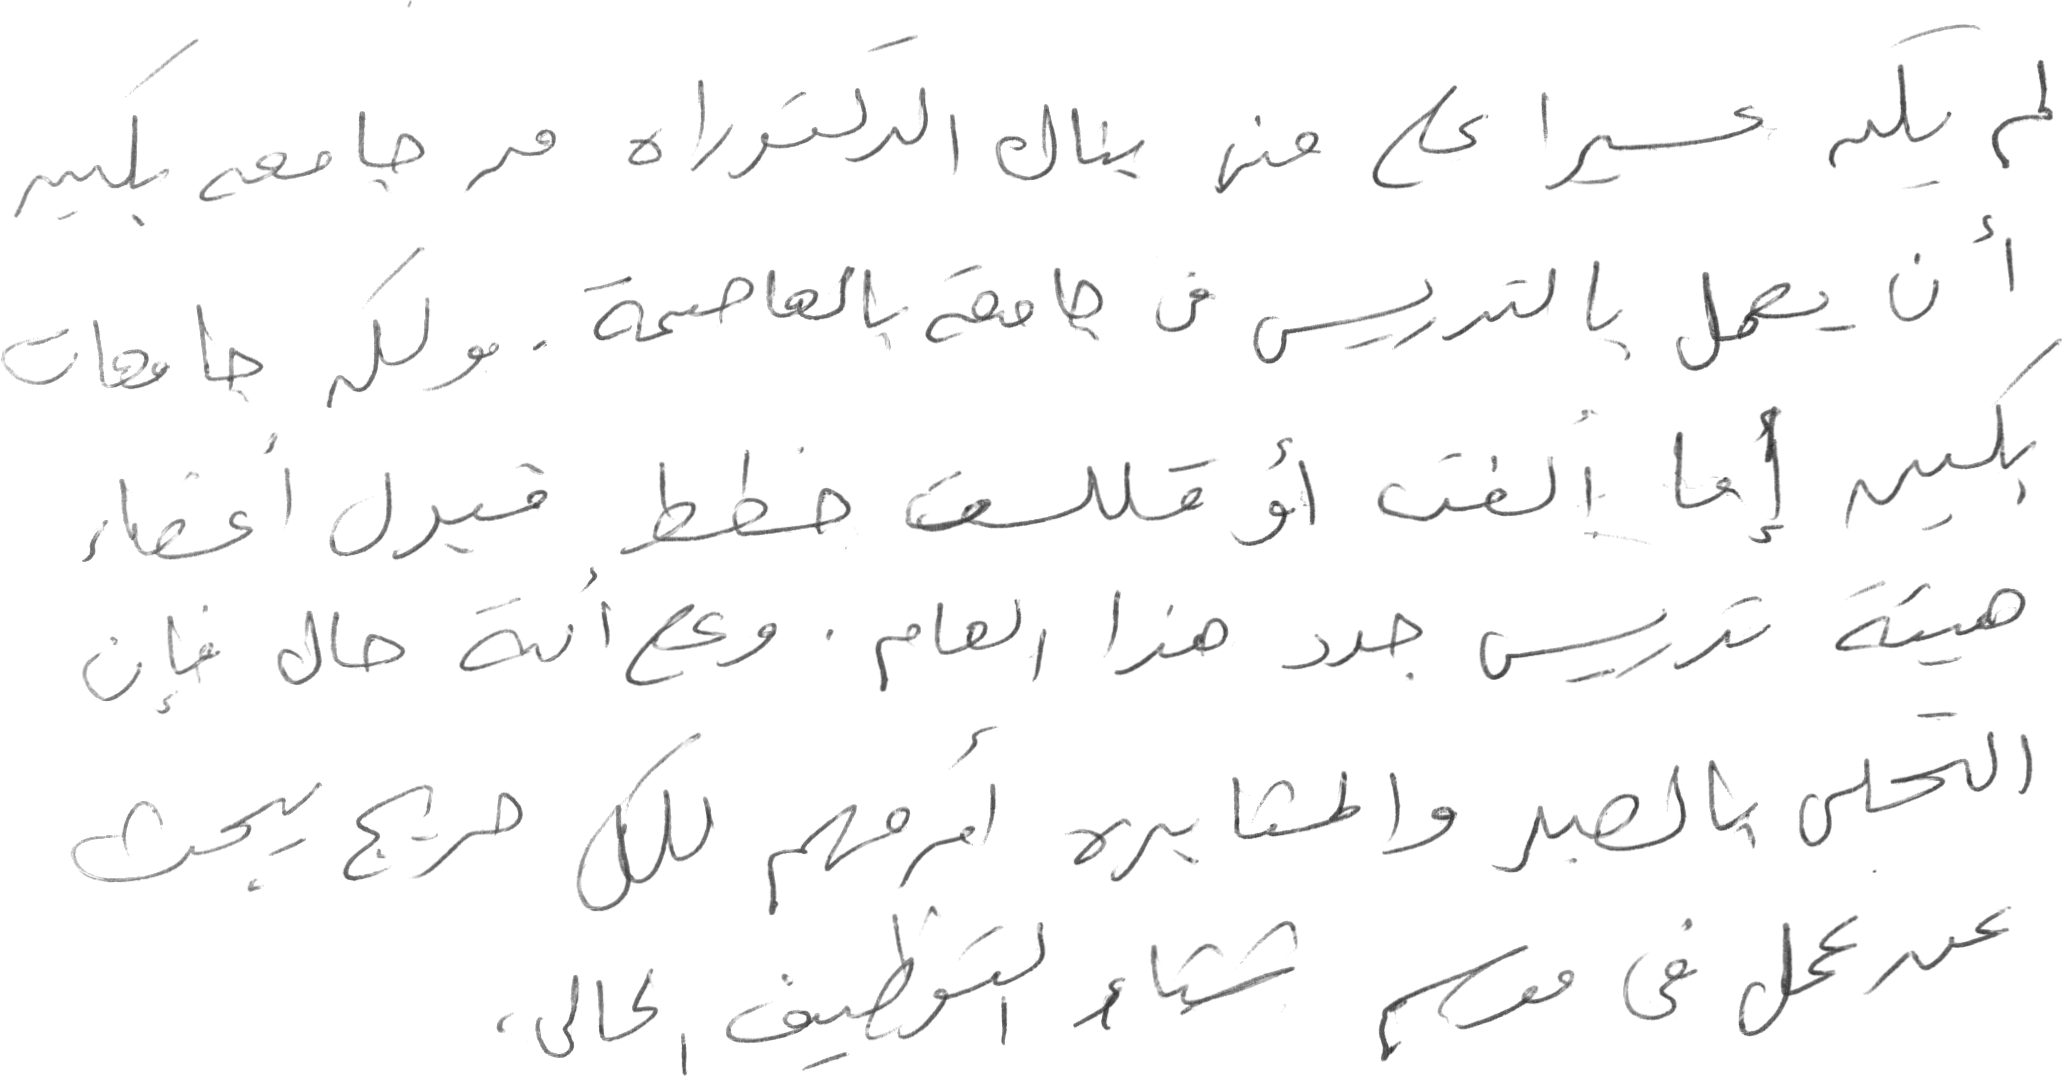 لم يكن عسيرا على من ينال الدكتوراه من جامعه بكين
أن يعمل بالتدريس في جامعة بالعاصمة. ولكن جامعات
بكين إما ألغت أو قللت خطط قبول أعضاء
هيئة تدريس جدد هذا العام. وعلى أية حال فإن
التحلى بالصبر والمثابره أمر مهم لكل خريج يبحث
عن عمل فى موسم شتاء التوظيف الحالى.